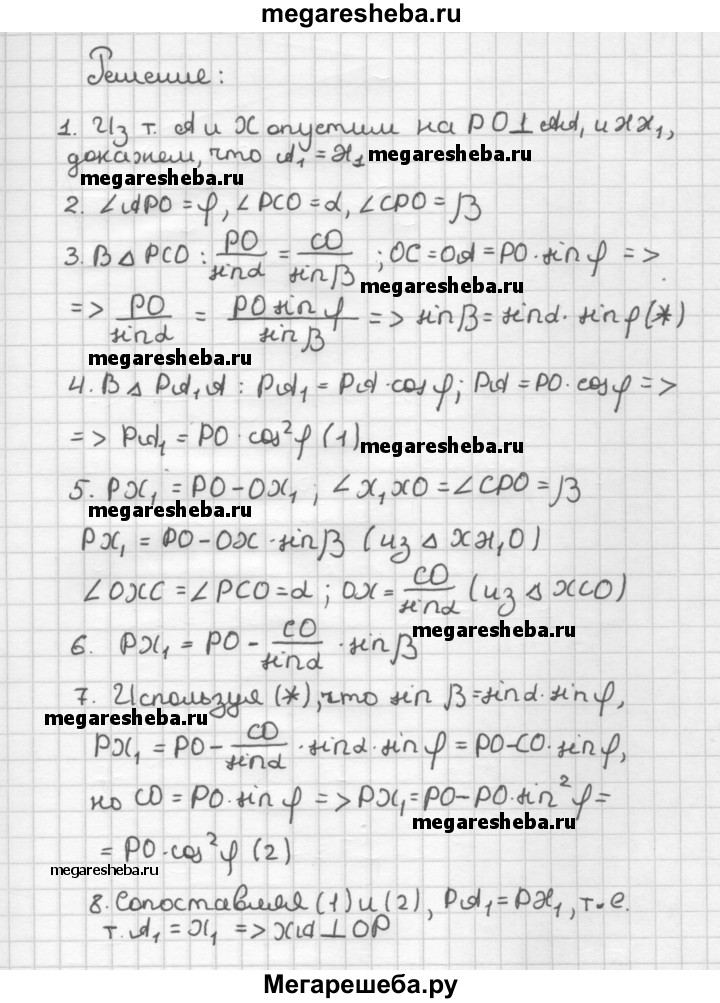 megaresheba.ru
Решение:
1. Из т. A и X опустим на PO⊥ AA₁ и XX₁,
докажем, что A₁ = X₁
megaresheba.ru
megaresheba.ru
2. ∠APO = φ, ∠PCO = α, ∠CPO = β
3. В △ PCO : PO/sinα = CO/sinβ ; OC = OA = PO · sin φ =>
megaresheba.ru
=> PO/sinα = PO sin φ/sin β => sin β = sin α · sin φ (*)
megaresheba.ru
4. В △ PA₁A : PA₁ = PA · cos φ; PA = PO · cos φ =>
=> PA₁ = PO · cos² φ (1)
megaresheba.ru
5. PX₁ = PO - OX₁ ; ∠X₁XO = ∠CPO = β
megaresheba.ru
PX₁ = PO - OX · sin β (из △ XX₁O)
∠OXC = ∠PCO = α ; OX = CO/sinα (из △ XCO)
megaresheba.ru
6. PX₁ = PO - CO/sinα · sin β
7. Используя (*), что sin β = sin α · sin φ,
megaresheba.ru
PX₁ = PO - CO/sinα · sin α · sin φ = PO - CO · sin φ,
но CO = PO · sin φ => PX₁ = PO - PO · sin² φ =
megaresheba.ru
= PO · cos² φ (2)
megaresheba.ru
8. Сопоставляя (1) и (2), PA₁ = PX₁, т.е.
т. A₁ = X₁ => XA ⊥ OP
Мегарешеба.ру